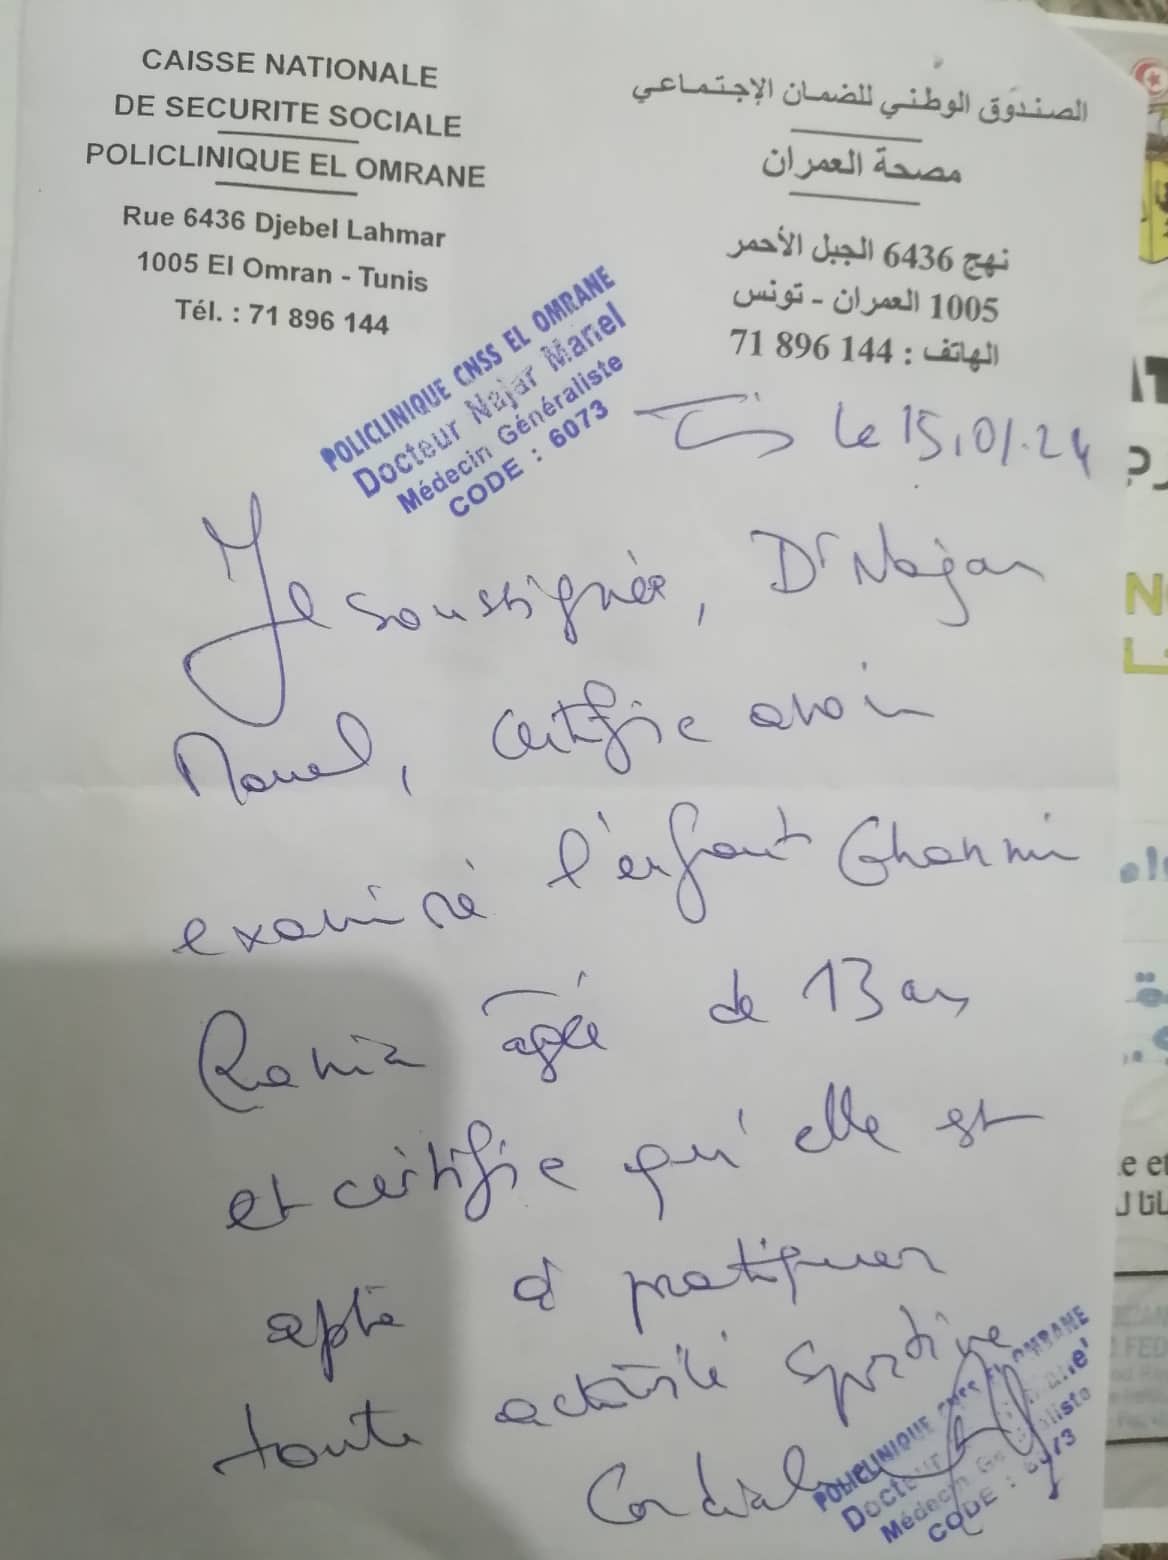 CAISSE NATIONALE
DE SECURITE SOCIALE
POLICLINIQUE EL OMRANE
Rue 6436 Djebel Lahmar
1005 El Omran - Tunis
Tél. : 71 896 144
الصندوق الوطني للضمان الإجتماعي
مصحة العمران
نهج 6436 الجبل الأحمر
1005 العمران - تونس
الهاتف : 144 896 71
POLICLINIQUE CNSS EL OMRANE
Docteur Najar Manel
Médecin Généraliste
CODE : 6073
le 15.01.24
Je soussignée, Dr Najar
Manel, certifie avoir
examiné l'enfant Ghanmi
Rania âgée de 13 ans
et certifie qu'elle est
apte à pratiquer
toute activité sportive
POLICLINIQUE CNSS EL OMRANE
Docteur
Médecin
CODE : 6073